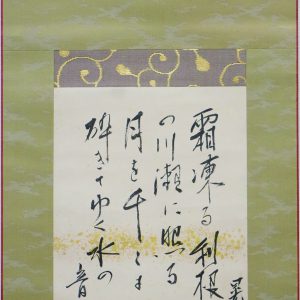 霜凍る利根
の川瀬に照る
月を千々に
砕きてゆく水の
音
晃